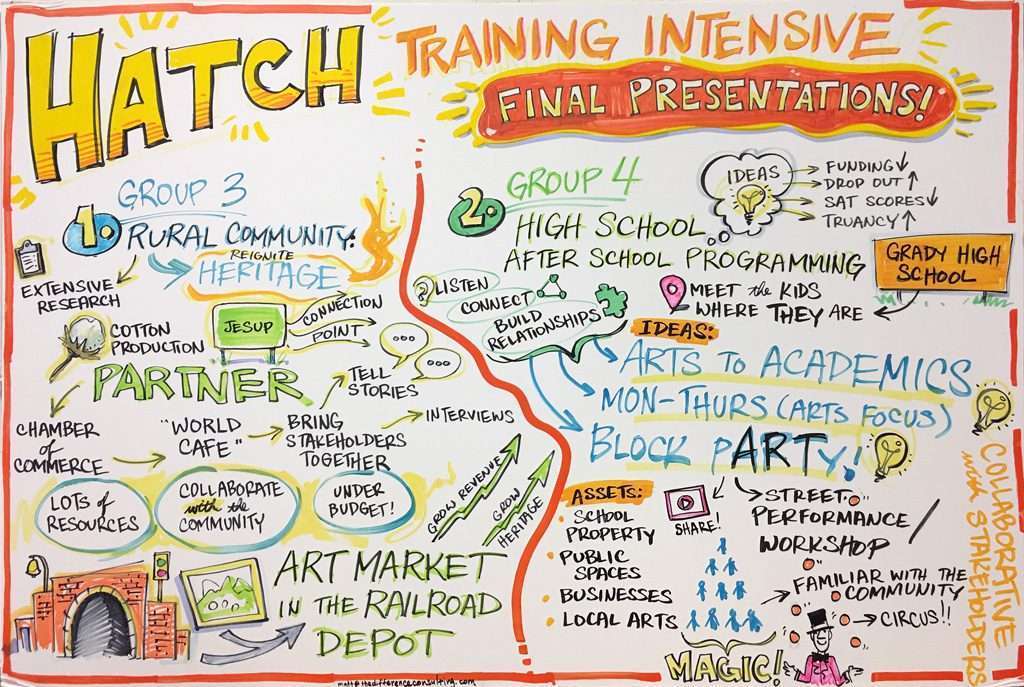 HATCH
TRAINING INTENSIVE
FINAL PRESENTATIONS!
GROUP 3
1.
RURAL COMMUNITY:
REIGNITE
HERITAGE
EXTENSIVE
RESEARCH
COTTON
PRODUCTION
JESUP
CONNECTION
POINT
PARTNER
TELL
STORIES
CHAMBER
of
COMMERCE
"WORLD
CAFE"
BRING
STAKEHOLDERS
TOGETHER
INTERVIEWS
LOTS of
RESOURCES
COLLABORATE
with the
COMMUNITY
UNDER
BUDGET!
GROW REVENUE
GROW
HERITAGE
ART MARKET
IN THE RAILROAD
DEPOT
2.
GROUP 4
HIGH SCHOOL
AFTER SCHOOL PROGRAMMING
IDEAS
FUNDING↓
DROP OUT↑
SAT SCORES↓
TRUANCY↑
GRADY HIGH
SCHOOL
? LISTEN
CONNECT
BUILD
RELATIONSHIPS
MEET the KIDS
WHERE THEY ARE
IDEAS:
ARTS TO ACADEMICS
MON-THURS (ARTS FOCUS)
BLOCK pARTy!
ASSETS:
• SCHOOL
PROPERTY
• PUBLIC
SPACES
• BUSINESSES
• LOCAL ARTS
SHARE!
STREET
PERFORMANCE
WORKSHOP
FAMILIAR WITH THE
COMMUNITY
CIRCUS!!
MAGIC!
COLLABORATIVE
with STAKEHOLDERS
matt@thedifferenceconsulting.com